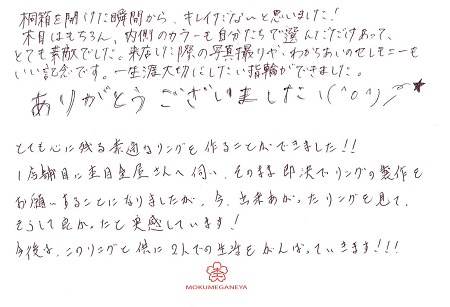 桐箱を開けた瞬間から、キレイだなぁと思いました！
木目はもちろん、内側のカラーも自分たちで選んだだけあって、
とても素敵でした。来店した際の写真撮りや、わかちあいのセレモニーも
いい記念です。一生涯大切にしたい指輪ができました。
ありがとうございました！(^o^)／★
とても心に残る素適なリングを作ることができました！！
1店舗目に杢目金屋さんへ伺い、そのまま即決でリングの製作を
お願いすることになりましたが、今、出来あがったリングを見て、
そうして良かったと実感しています！
今後は、このリングと供に2人での生活をがんばっていきます！！！
MOKUMEGANEYA